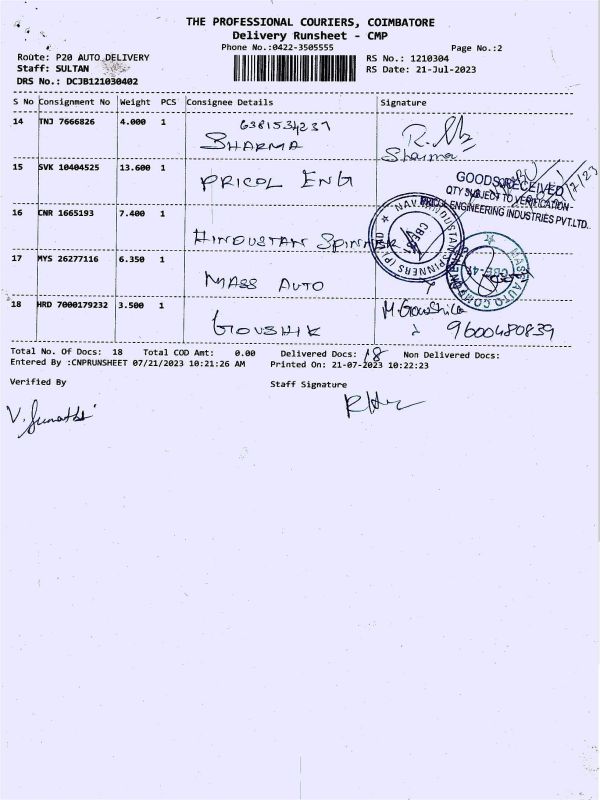 THE PROFESSIONAL COURIERS, COIMBATORE
Delivery Runsheet - CMP
Phone No.:0422-3505555
Page No.:2
Route: P20 AUTO DELIVERY
RS No.: 1210304
Staff: SULTAN
RS Date: 21-Jul-2023
DRS No.: DCJB121030402
S No Consignment No Weight PCS Consignee Details Signature
14 TNJ 7666826 4.000 1 6381534237
SHARMA
Sharma
15 SVK 10404525 13.600 1 PRICOL ENG
GOODS RECEIVED
QTY SUBJECT TO VERIFICATION
PRICOL ENGINEERING INDUSTRIES PVT.LTD.
16 CNR 1665193 7.400 1 HINDUSTAN SPINNER
17 MYS 26277116 6.350 1 MASS AUTO
MASS AUTO COMPONENTS
18 HRD 7000179232 3.500 1 GOUSHIK
9600480839
Total No. Of Docs: 18 Total COD Amt: 0.00 Delivered Docs: 18 Non Delivered Docs:
Entered By :CNPRUNSHEET 07/21/2023 10:21:26 AM Printed On: 21-07-2023 10:22:23
Verified By Staff Signature